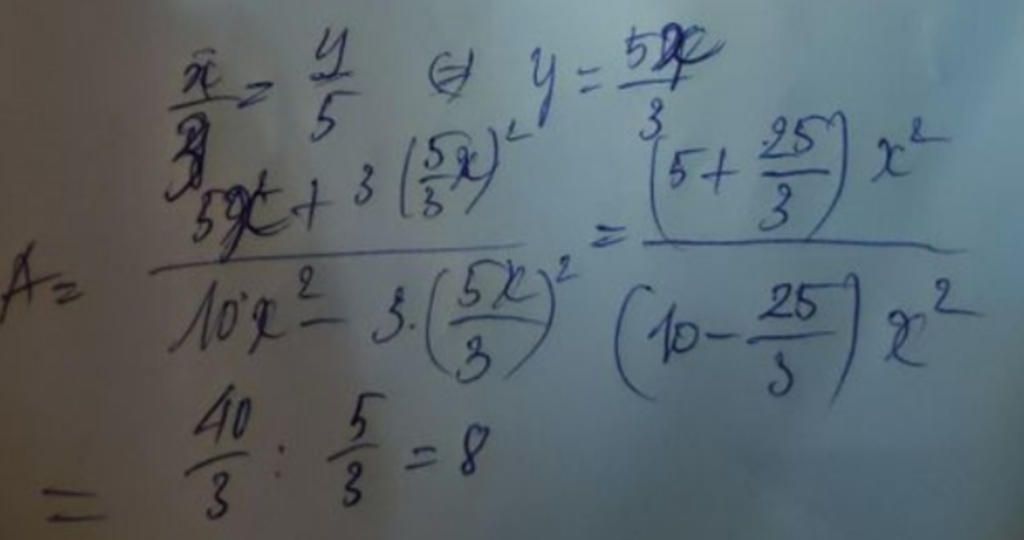 x/3 = y/5 ⇔ y = 5x/3
A = (5x² + 3(5/3 x)²)/(10x² - 3.(5x/3)²) = ((5 + 25/3) x²)/((10 - 25/3) x²)
= 40/3 : 5/3 = 8